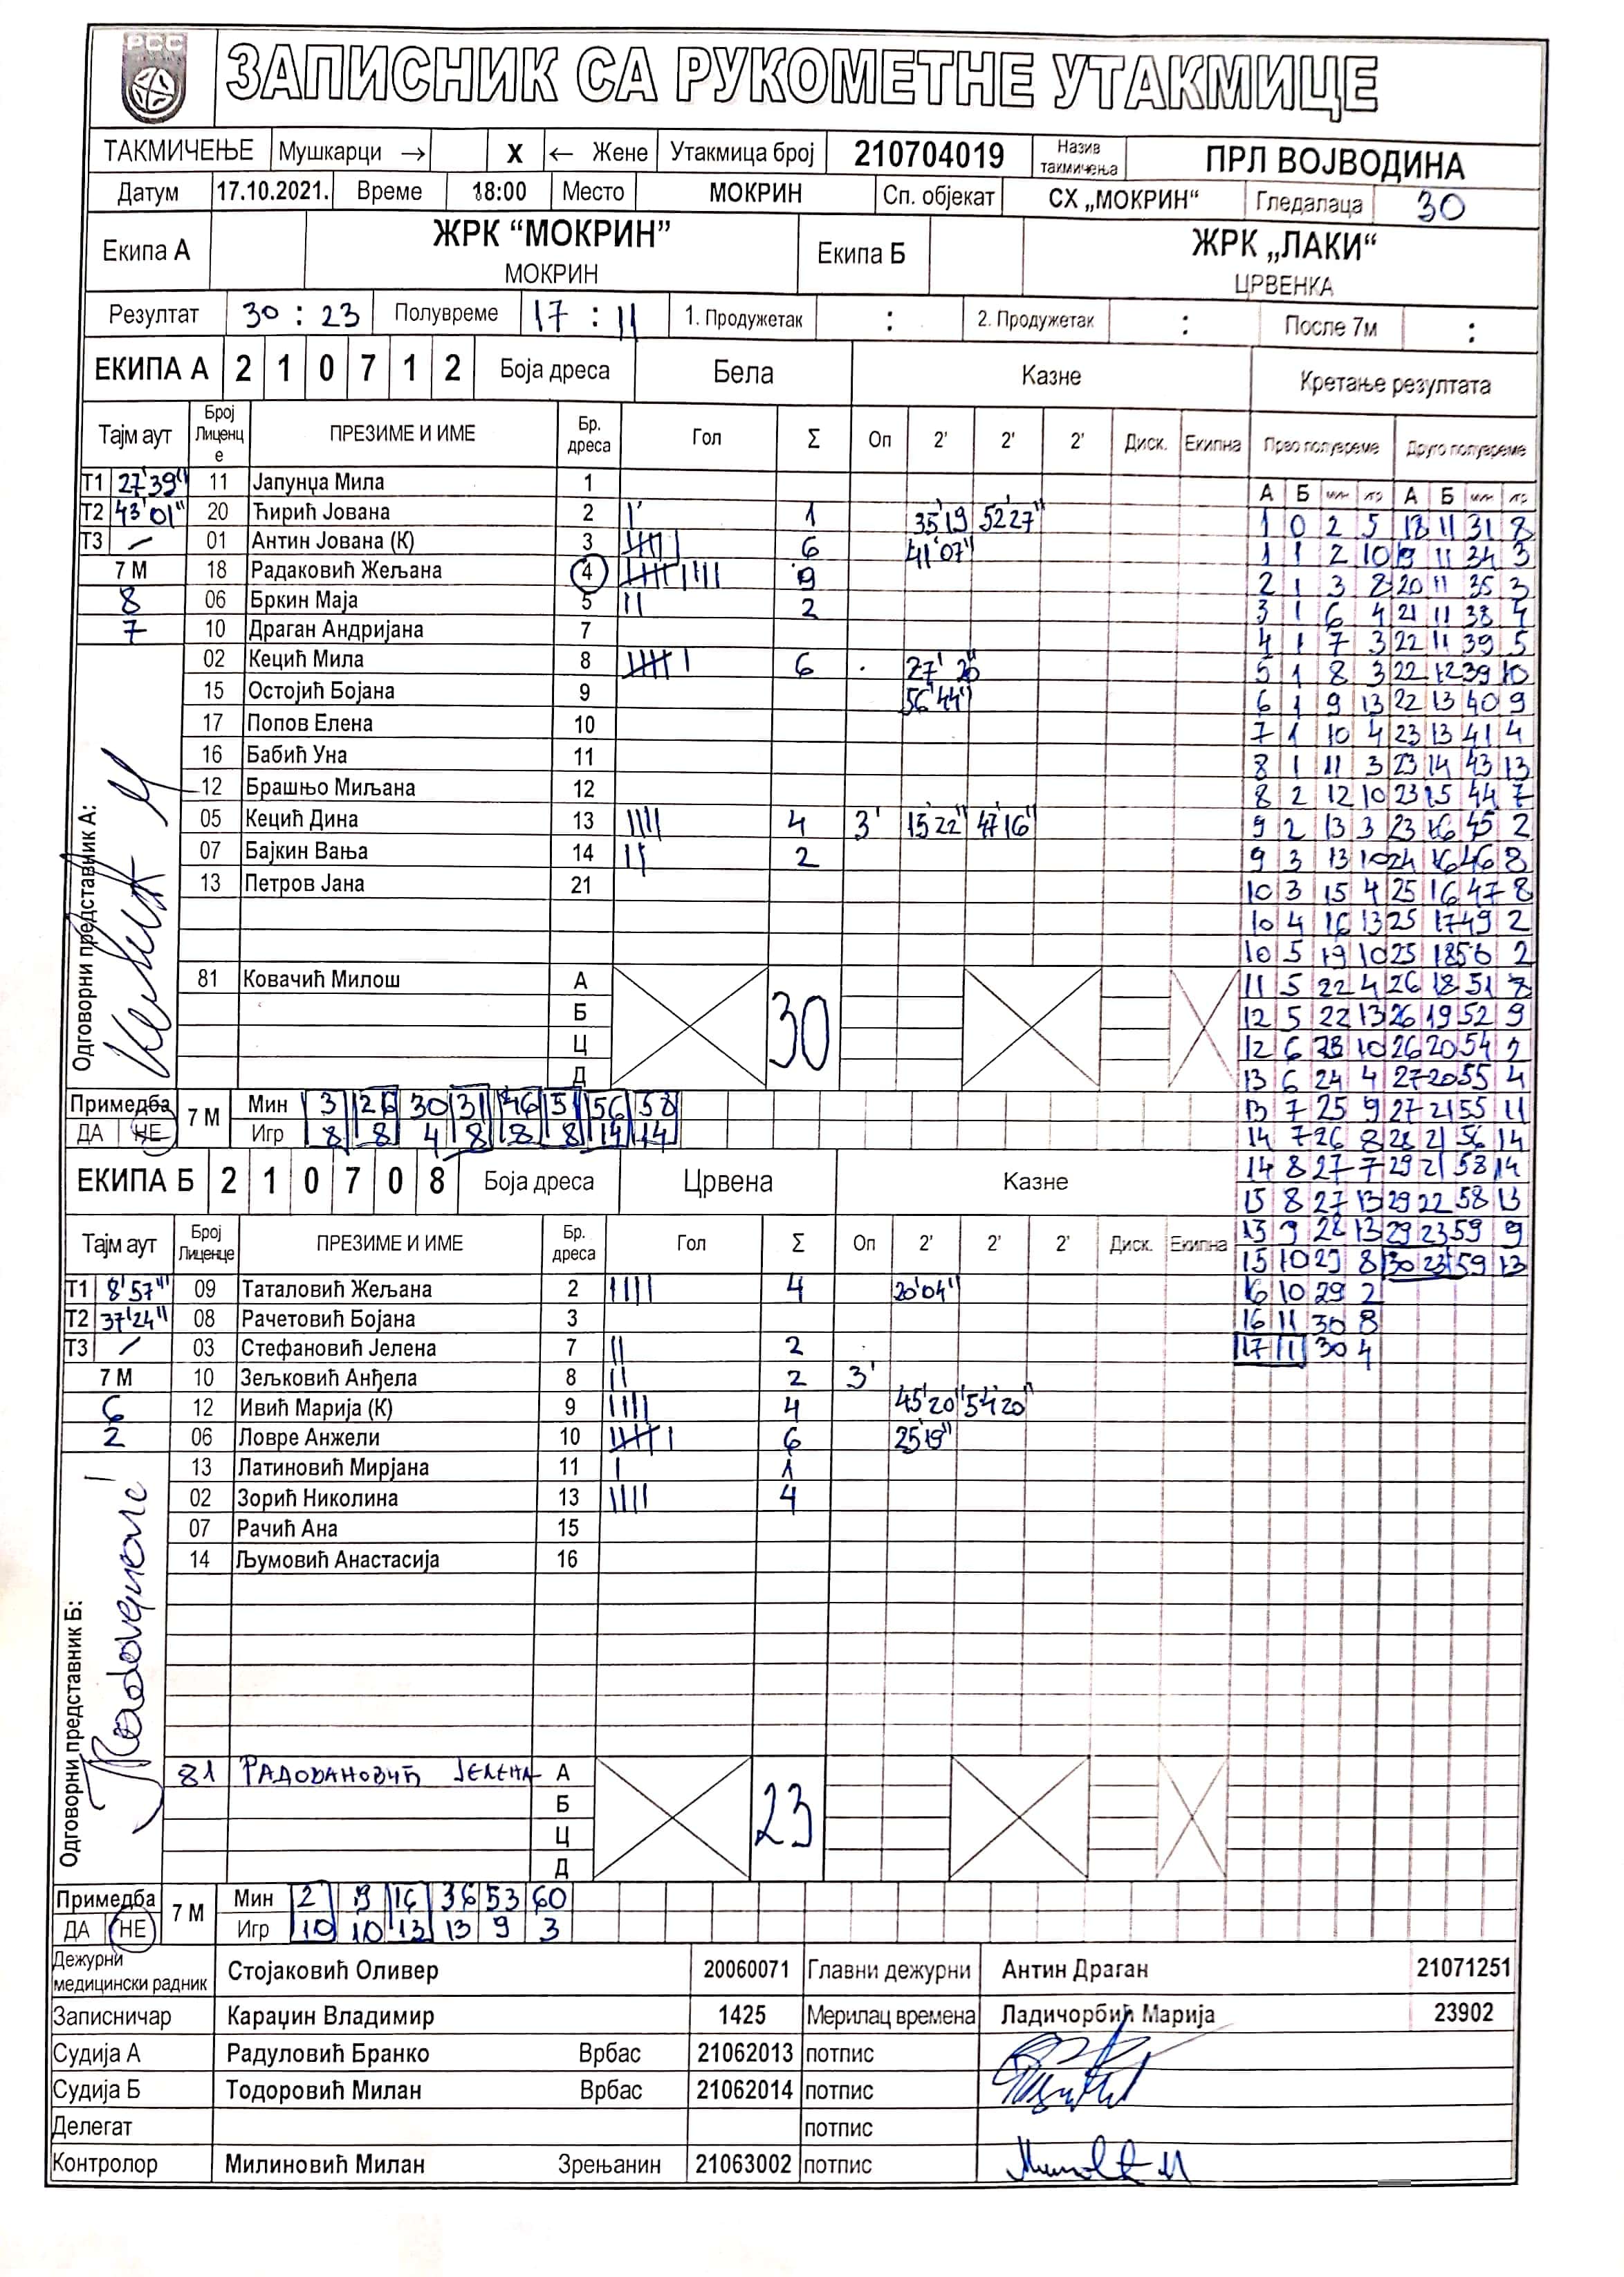 РСС
ЗАПИСНИК СА РУКОМЕТНЕ УТАКМИЦЕ
ТАКМИЧЕЊЕ Мушкарци → X ← Жене Утакмица број 210704019 Назив такмичења ПРЛ ВОЈВОДИНА
Датум 17.10.2021. Време 18:00 Место МОКРИН Сп. објекат СХ „МОКРИН“ Гледалаца 30
Екипа А ЖРК “МОКРИН” МОКРИН Екипа Б ЖРК „ЛАКИ“ ЦРВЕНКА
Резултат 30 : 23 Полувреме 17 : 11 1. Продужетак : 2. Продужетак : После 7м :
ЕКИПА А 2 1 0 7 1 2 Боја дреса Бела Казне Кретање резултата
Тајм аут Број Лиценце ПРЕЗИМЕ И ИМЕ Бр. дреса Гол Σ Оп 2' 2' 2' Диск. Екипна Прво полувреме Друго полувреме
Т1 27'39" 11 Јапунџа Мила 1 А Б мин игр А Б мин игр
Т2 43'01" 20 Ћирић Јована 2 1 35'19 52'27" 1 0 2 5 18 11 31 8
Т3 01 Антин Јована (К) 3 6 41'07" 1 1 2 10 19 11 34 3
7 М 18 Радаковић Жељана 4 9 2 1 3 8 20 11 35 3
8 06 Бркин Маја 5 2 3 1 6 4 21 11 38 4
7 10 Драган Андријана 7 4 1 7 3 22 11 39 5
02 Кецић Мила 8 6 27' 26" 5 1 8 3 22 12 39 10
15 Остојић Бојана 9 56'44" 6 1 9 13 22 13 40 9
17 Попов Елена 10 7 1 10 4 23 13 41 4
16 Бабић Уна 11 8 1 11 3 23 14 43 13
12 Брашњо Миљана 12 8 2 12 10 23 15 44 7
05 Кецић Дина 13 4 3' 15'22" 47'16" 9 2 13 3 23 16 45 2
07 Бајкин Вања 14 2 9 3 13 10 24 16 46 8
13 Петров Јана 21 10 3 15 4 25 16 47 8
10 4 16 13 25 17 49 2
10 5 19 10 25 18 50 2
81 Ковачић Милош А 30 11 5 22 4 26 18 51 8
Б 12 5 22 13 26 19 52 9
Ц 12 6 23 10 26 20 54 2
Д 13 6 24 4 27 20 55 4
Одговорни представник А:
Примедба 7 М Мин 3 26 30 31 46 51 56 58 13 7 25 9 27 21 55 11
ДА НЕ Игр 8 8 4 8 8 8 14 14 14 7 26 8 28 21 56 14
ЕКИПА Б 2 1 0 7 0 8 Боја дреса Црвена Казне 14 8 27 7 29 21 58 14
15 8 27 13 29 22 58 13
Тајм аут Број Лиценце ПРЕЗИМЕ И ИМЕ Бр. дреса Гол Σ Оп 2' 2' 2' Диск. Екипна 15 9 28 13 29 23 59 9
15 10 29 8 30 23 59 13
Т1 8'57" 09 Таталовић Жељана 2 4 20'04" 16 10 29 2
Т2 37'24" 08 Рачетовић Бојана 3 16 11 30 8
Т3 03 Стефановић Јелена 7 2 17 11 30 4
7 М 10 Зељковић Анђела 8 2 3'
6 12 Ивић Марија (К) 9 4 45'20" 54'20"
2 06 Ловре Анжели 10 6 25'19"
13 Латиновић Мирјана 11 1
02 Зорић Николина 13 4
07 Рачић Ана 15
14 Љумовић Анастасија 16
Одговорни представник Б:
81 РАДОВАНОВИЋ ЈЕЛЕНА А 23
Б
Ц
Д
Примедба 7 М Мин 2 9 16 36 53 60
ДА НЕ Игр 10 10 13 13 9 3
Дежурни медицински радник Стојаковић Оливер 20060071 Главни дежурни Антин Драган 21071251
Записничар Караџин Владимир 1425 Мерилац времена Ладичорбић Марија 23902
Судија А Радуловић Бранко Врбас 21062013 потпис
Судија Б Тодоровић Милан Врбас 21062014 потпис
Делегат потпис
Контролор Милиновић Милан Зрењанин 21063002 потпис